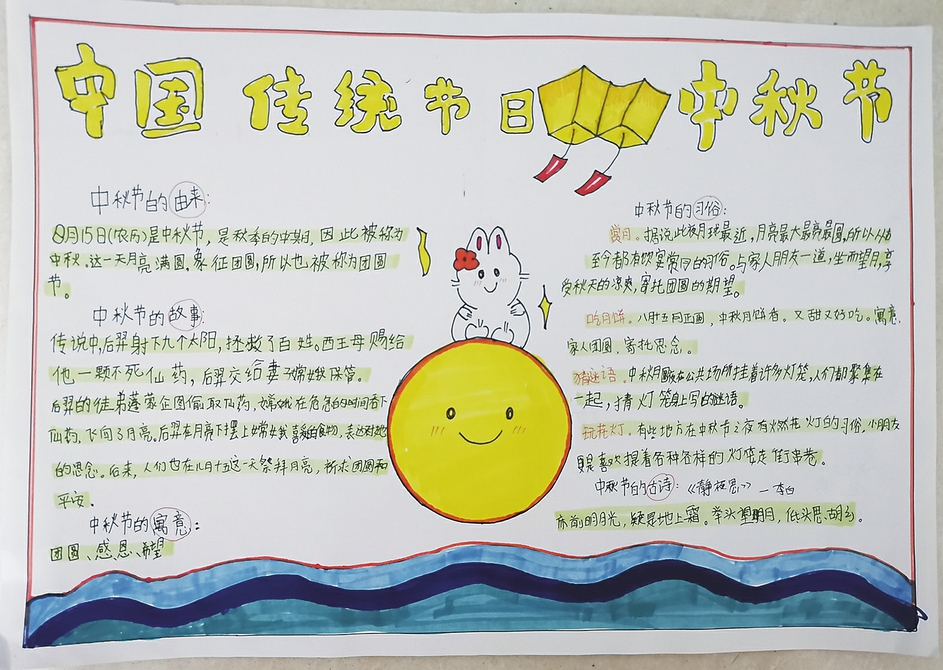 中国传统节日中秋节
中秋节的由来:
8月15日(农历)是中秋节，是秋季的中期，因此被称为
中秋。这一天月亮满圆。象征团圆，所以也被称为团圆
节。
中秋节的故事:
传说中，后羿射下九个太阳，拯救了百姓。西王母赐给
他一颗不死仙药，后羿交给妻子嫦娥保管。
后羿的徒弟蓬蒙企图偷取仙药，嫦娥在危急的时间吞下
仙药，飞向了月亮。后羿在月亮下摆上嫦娥喜爱的食物，表达对她
的思念。后来，人们也在八月十五这一天祭拜月亮，祈求团圆和
平安。
中秋节的寓意:
团圆、感恩、希望
中秋节的习俗:
赏月。据说此夜月球最近，月亮最大最亮最圆，所以从
至今都有饮宴赏月的习俗。与家人朋友一道，坐而望月，享
受秋天的凉爽，寄托团圆的期望。
吃月饼。八月十五月正圆，中秋月饼香。又甜又好吃。寓意
家人团圆，寄托思念。
猜谜语。中秋月圆夜在公共场所挂着许多灯笼，人们都聚集在
一起，猜灯笼身上写的谜语。
玩花灯。有些地方在中秋节之夜有燃花灯的习俗。小朋友
更是喜欢提着各种各样的灯笼走街串巷。
中秋节的古诗:《静夜思》—李白
床前明月光，疑是地上霜。举头望明月，低头思故乡。